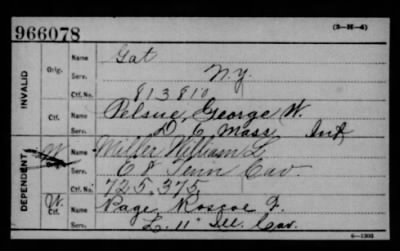 966078
(3-H-4)
INVALID
Orig.
Name Gat
Serv. N.Y.
Ctf. No. 813810
Ctf.
Name Pelsue, George W.
Serv. D 6 Mass Inf
DEPENDENT
W
Name Miller William L.
Serv. E 8 Tenn Cav.
Ctf. No. 725,375
W.
Ctf.
Name Page Roscoe F.
Serv. L. 11" Ill. Cav.